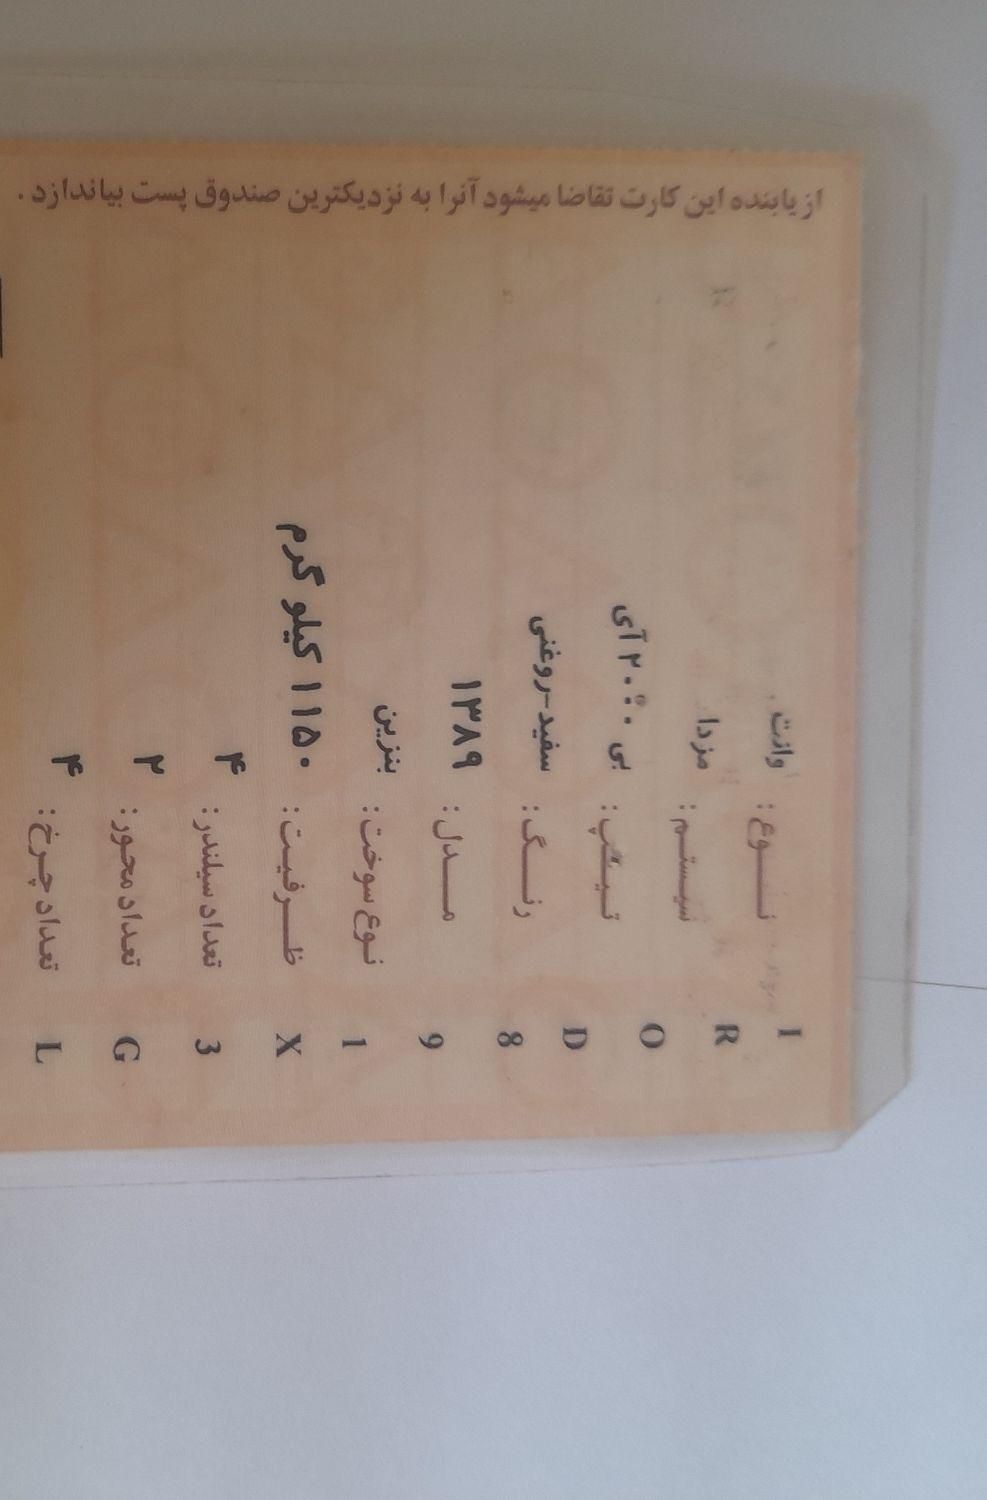 از یابنده این کارت تقاضا میشود آنرا به نزدیکترین صندوق پست بیاندازد .
نوع : وانت
سیستم : مزدا
تیپ : بی ۲۰۰۰ آی
رنگ : سفید-روغنی
مدل : ۱۳۸۹
نوع سوخت : بنزین
ظرفیت : ۱۱۵۰ کیلو گرم
تعداد سیلندر : ۴
تعداد محور : ۲
تعداد چرخ : ۴
I R O D 8 9 1 X 3 G L